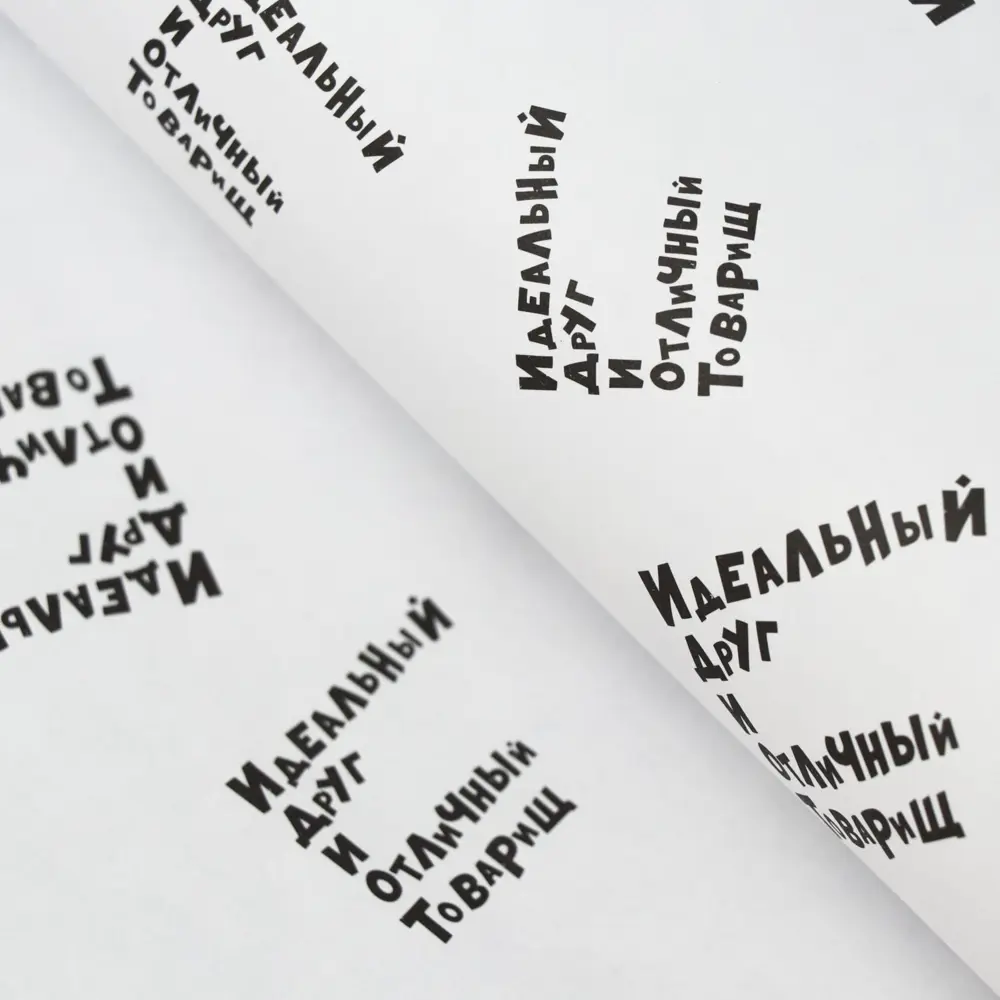 Идеальный
Друг
и
Отличный
Товарищ
Идеальный
Друг
и
Отличный
Товарищ
Идеальный
Друг
и
Отличный
Товарищ
Идеальный
Друг
и
Отличный
Товарищ
Друг
и